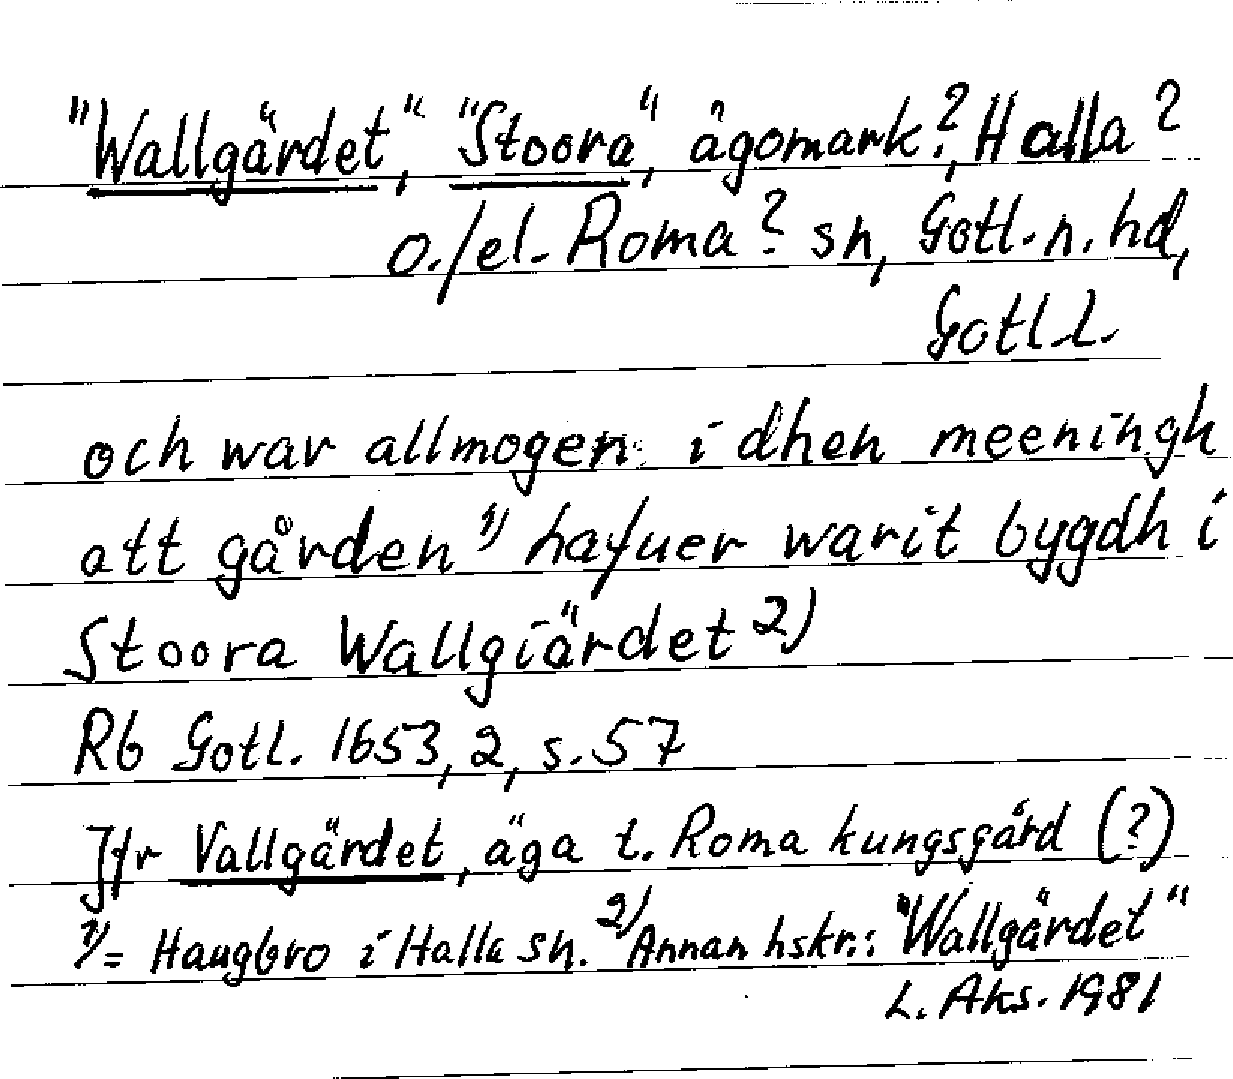 "Wallgärdet", "Stoora", ägomark?, Halla?
o./el. Roma? sn, Gotl. n. hd,
Gotl. l.
och war allmogen i dhen meeningh
att gården 1) hafuer warit bygdh i
Stoora Wallgiärdet 2)
Rb Gotl. 1653, 2, s. 57
Jfr Vallgärdet, äga t. Roma kungsgård (?)
1) = Haugbro i Halla sn. 2) Annan hskr.: "Wallgärdet"
L. Aks. 1981